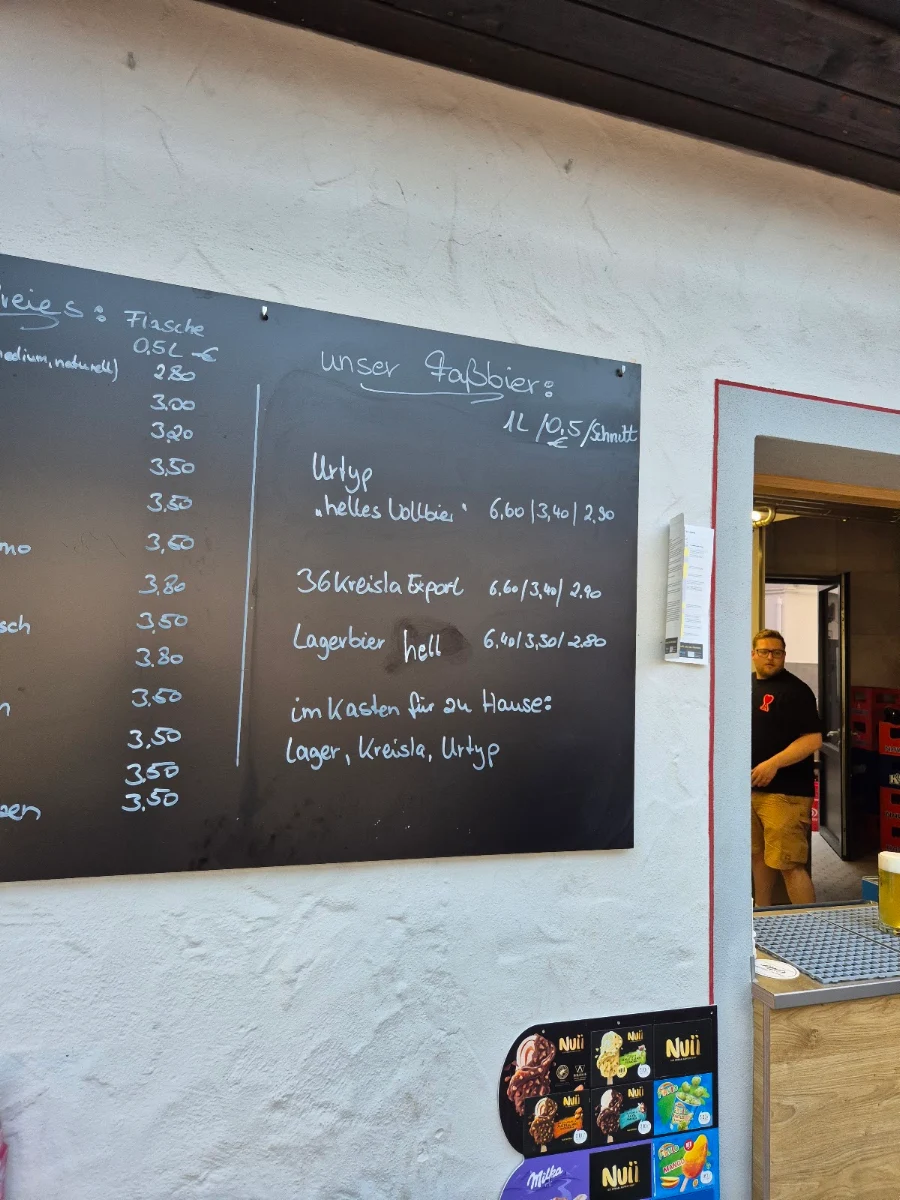 reies: Flasche
0,5L €
medium, naturell) 2,80
3,00
3,20
3,50
3,50
mo 3,60
3,80
sch 3,50
3,80
n 3,50
3,50
3,50
zen 3,50
unser Faßbier:
1L / 0,5 / Schnitt
€
Urtyp
„helles Vollbier" 6,60 | 3,40 | 2,90
36Kreisla Export 6,60 / 3,40 / 2,90
Lagerbier hell 6,40 / 3,30 / 2,80
im Kasten für zu Hause:
Lager, Kreisla, Urtyp
Nuii
Nuii
Nuii
Nuii
Nuii
Milka
Nuii